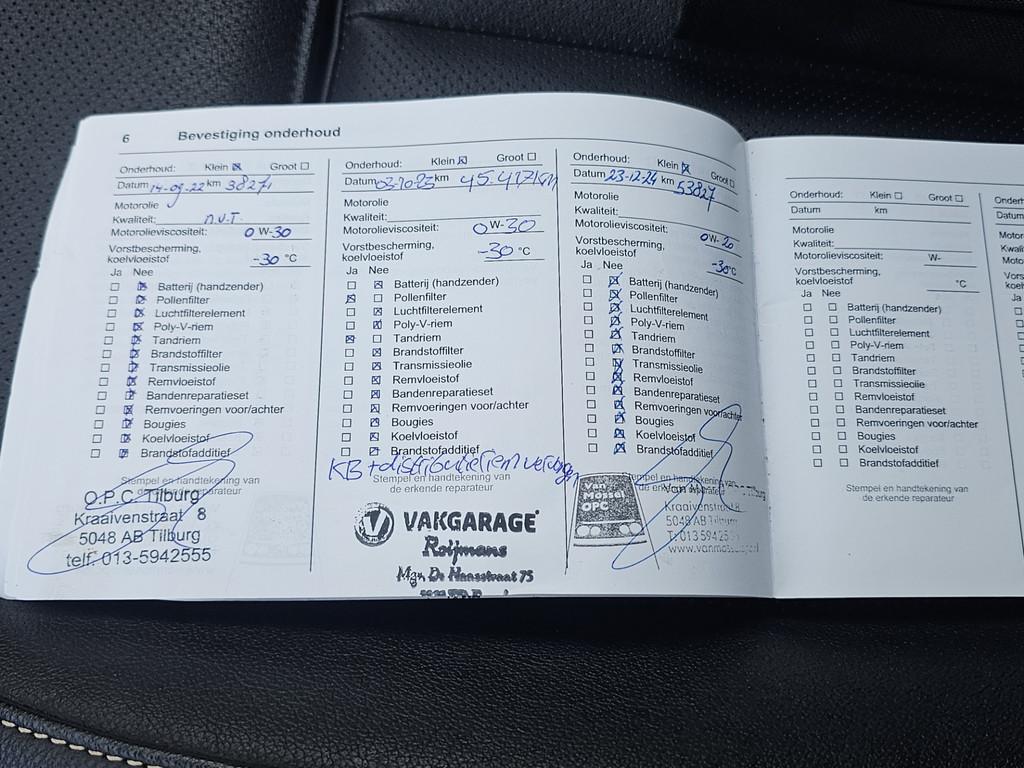 6 Bevestiging onderhoud
Onderhoud: Klein Groot
Datum 14-09-22 km 38271
Motorolie
Kwaliteit: n.v.T.
Motorolieviscositeit: 0 W-30
Vorstbescherming,
koelvloeistof -30 °C
Ja Nee
Batterij (handzender)
Pollenfilter
Luchtfilterelement
Poly-V-riem
Tandriem
Brandstoffilter
Transmissieolie
Remvloeistof
Bandenreparatieset
Remvoeringen voor/achter
Bougies
Koelvloeistof
Brandstofadditief
Stempel en handtekening van
de erkende reparateur
O.P.C. Tilburg
Kraaivenstraat 8
5048 AB Tilburg
telf. 013-5942555
Onderhoud: Klein Groot
Datum 03-10-23 km 45.417km
Motorolie
Kwaliteit:
Motorolieviscositeit: 0 W-30
Vorstbescherming,
koelvloeistof -30 °C
Ja Nee
Batterij (handzender)
Pollenfilter
Luchtfilterelement
Poly-V-riem
Tandriem
Brandstoffilter
Transmissieolie
Remvloeistof
Bandenreparatieset
Remvoeringen voor/achter
Bougies
Koelvloeistof
Brandstofadditief
KB + distributieriem vervangen
Stempel en handtekening van
de erkende reparateur
VAKGARAGE
Roijmans
Mgr. De Haasstraat 75
Onderhoud: Klein Groot
Datum 23-12-24 km 53827
Motorolie
Kwaliteit:
Motorolieviscositeit: 0 W-20
Vorstbescherming,
koelvloeistof -30 °C
Ja Nee
Batterij (handzender)
Pollenfilter
Luchtfilterelement
Poly-V-riem
Tandriem
Brandstoffilter
Transmissieolie
Remvloeistof
Bandenreparatieset
Remvoeringen voor/achter
Bougies
Koelvloeistof
Brandstofadditief
Stempel en handtekening van
de erkende reparateur
Van
Mossel
OPC
Kraaivenstraat 8
5048 AB Tilburg
Onderhoud: Klein Groot
Datum km
Motorolie
Kwaliteit:
Motorolieviscositeit: W-
Vorstbescherming,
koelvloeistof °C
Ja Nee
Batterij (handzender)
Pollenfilter
Luchtfilterelement
Poly-V-riem
Tandriem
Brandstoffilter
Transmissieolie
Remvloeistof
Bandenreparatieset
Remvoeringen voor/achter
Bougies
Koelvloeistof
Brandstofadditief
Stempel en handtekening van
de erkende reparateur